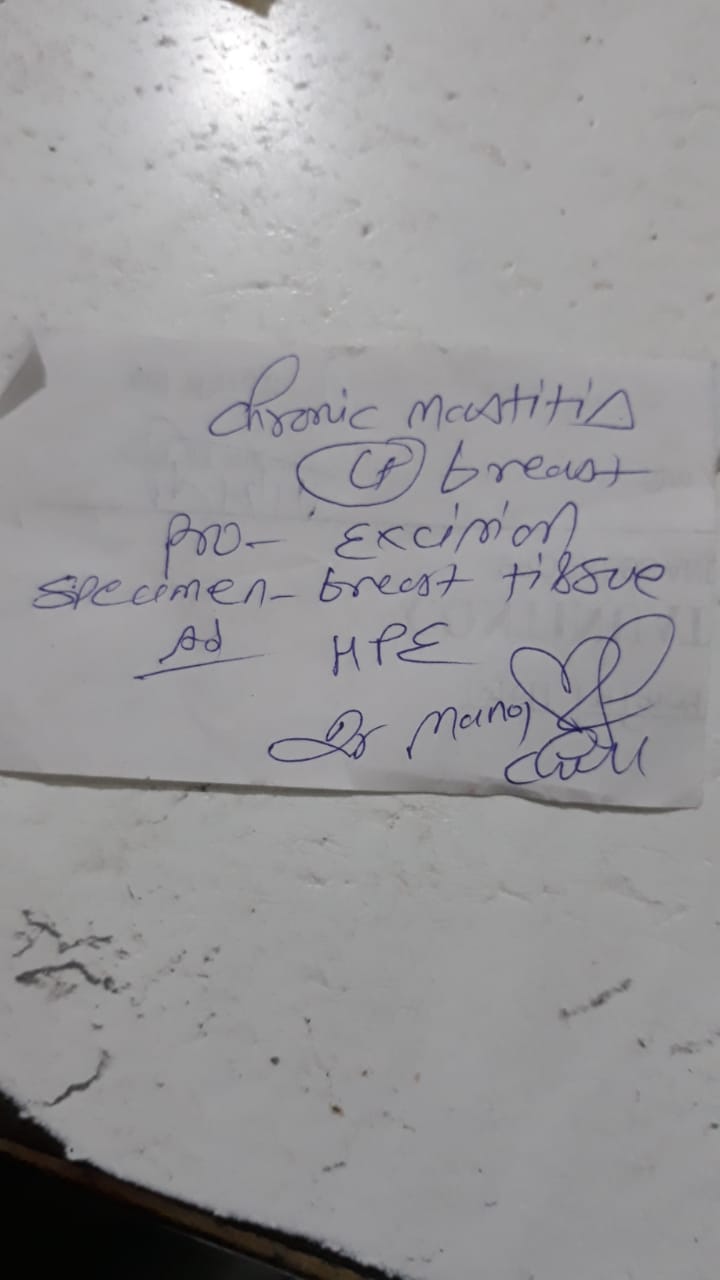 Chronic mastitis
Lt breast
Pro- Excision
Specimen- breast tissue
Ad HPE
Dr Manoj